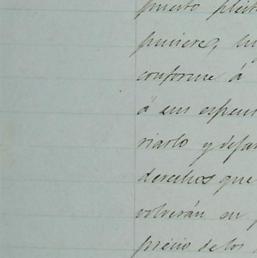 puesto pleit
pusiere, lu
conforme á
á sus espens
riarlo y defa
derechos que
volverán su
precio de los